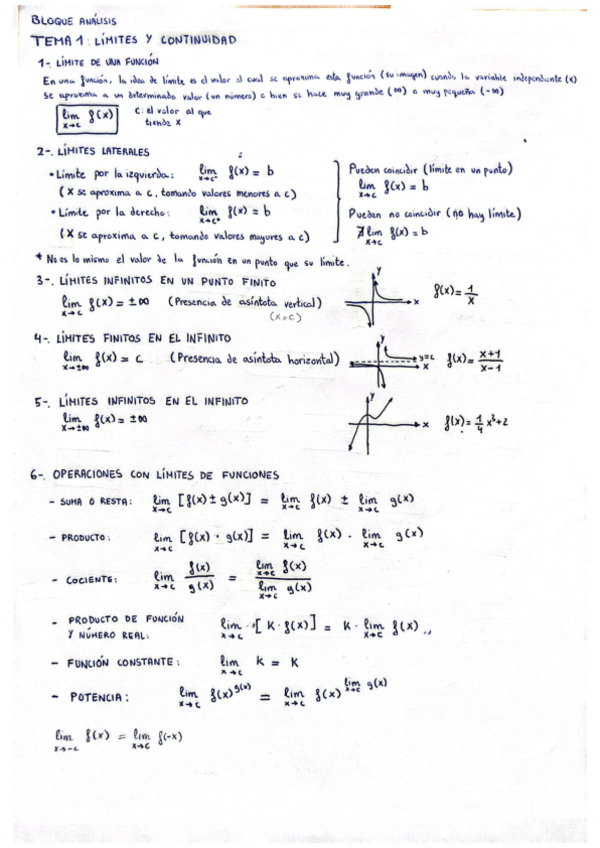 BLOQUE ANÁLISIS
TEMA 1: LÍMITES Y CONTINUIDAD
1-. LÍMITE DE UNA FUNCIÓN
En una función, la idea de límite es el valor al cual se aproxima esta función (su imagen) cuando la variable independiente (x)
se aproxima a un determinado valor (un número) o bien se hace muy grande (∞) o muy pequeña (-∞)
lim x→c f(x) c: el valor al que tiende x
2-. LÍMITES LATERALES
• Límite por la izquierda: lim x→c⁻ f(x) = b
(x se aproxima a c, tomando valores menores a c)
• Límite por la derecha: lim x→c⁺ f(x) = b
(x se aproxima a c, tomando valores mayores a c)
Pueden coincidir (límite en un punto)
lim x→c f(x) = b
Pueden no coincidir (no hay límite)
∄ lim x→c f(x) = b
* No es lo mismo el valor de la función en un punto que su límite.
3-. LÍMITES INFINITOS EN UN PUNTO FINITO
lim x→c f(x) = ±∞ (Presencia de asíntota vertical)
(x=c)
y
x
f(x) = 1/x
4-. LÍMITES FINITOS EN EL INFINITO
lim x→±∞ f(x) = c (Presencia de asíntota horizontal)
y
y=c
x
f(x) = x+1/x-1
5-. LÍMITES INFINITOS EN EL INFINITO
lim x→±∞ f(x) = ±∞
y
x
f(x) = 1/4 x³+2
6-. OPERACIONES CON LÍMITES DE FUNCIONES
- SUMA O RESTA: lim x→c [f(x) ± g(x)] = lim x→c f(x) ± lim x→c g(x)
- PRODUCTO: lim x→c [f(x) · g(x)] = lim x→c f(x) · lim x→c g(x)
- COCIENTE: lim x→c f(x)/g(x) = lim x→c f(x) / lim x→c g(x)
- PRODUCTO DE FUNCIÓN
Y NÚMERO REAL: lim x→c [K · f(x)] = K · lim x→c f(x)
- FUNCIÓN CONSTANTE: lim x→c K = K
- POTENCIA: lim x→c f(x)^g(x) = lim x→c f(x)^lim x→c g(x)
lim x→-c f(x) = lim x→c f(-x)